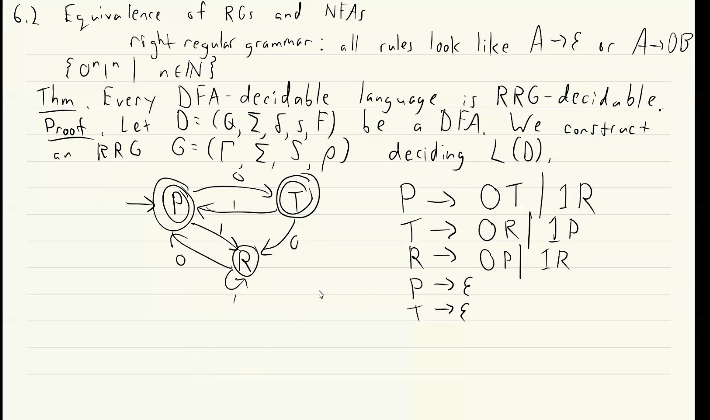 6.2 Equivalence of RGs and NFAs
right regular grammar: all rules look like A→ε or A→0B
{0ⁿ1ⁿ | n∈ℕ}
Thm. Every DFA-decidable language is RRG-decidable.
Proof. Let D=(Q, Σ, δ, s, F) be a DFA. We construct
an RRG G=(Γ, Σ, S, ρ) deciding L(D).
0
P
1
T
1
0
0
R
1
P → 0T | 1R
T → 0R | 1P
R → 0P | 1R
P → ε
T → ε